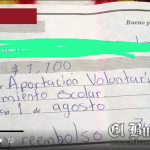 Bueno p
$ 1,100
Aportación Voluntari
miento escolar
1 agosto
reembolso
El Bu